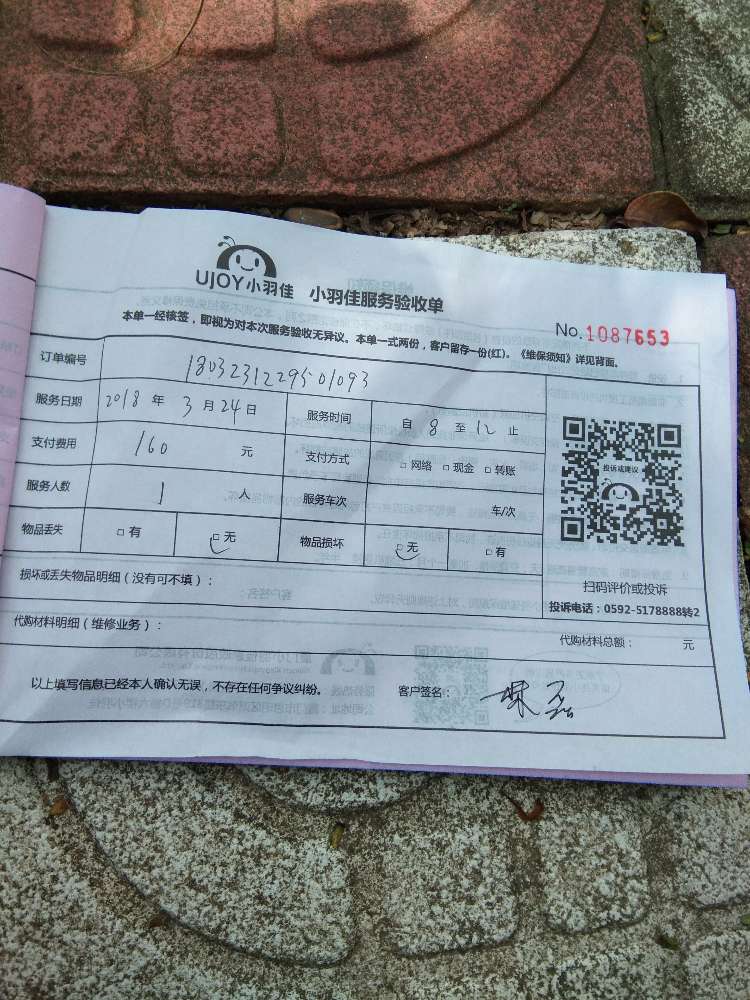 UJOY小羽佳 小羽佳服务验收单
No.1087653
本单一经核签，即视为对本次服务验收无异议。本单一式两份，客户留存一份(红)。《维保须知》详见背面。
订单编号 180323122950​1093
服务日期 2018 年 3 月 24 日 服务时间 自 8 至 12 止
支付费用 160 元 支付方式 □ 网络 □ 现金 □ 转账
服务人数 1 人 服务车次 车/次
物品丢失 □ 有 □ 无 物品损坏 □ 无 □ 有
投诉或建议
扫码评价或投诉
投诉电话：0592-5178888转2
损坏或丢失物品明细（没有可不填）：
代购材料明细（维修业务）： 代购材料总额： 元
以上填写信息已经本人确认无误，不存在任何争议纠纷。 客户签名：